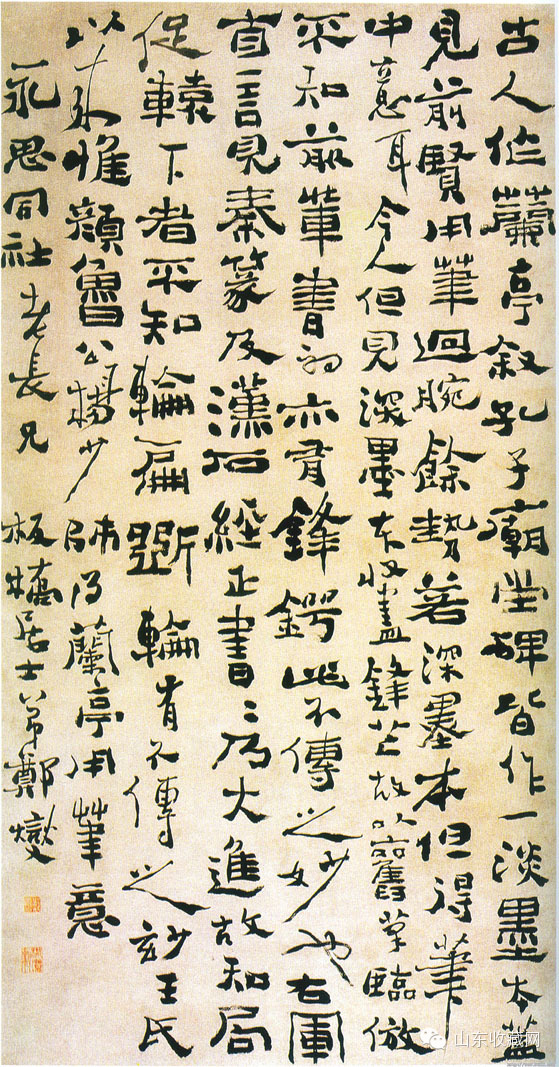 古人作蘭亭叙孔子廟堂碑皆作一淡墨本蓋
見前賢用筆迴腕餘勢若深墨本但得筆
中意耳今人但見深墨本收盡鋒芒故以舊筆臨倣
不知前輩書初亦有鋒鍔此不傳之妙也右軍
自言見秦篆及漢石經正書〻乃大進故知局
促轅下者不知輪扁斲輪有不傳之妙王氏
以來惟顏魯公楊少師得蘭亭用筆意
永思同社老長兄 板橋居士弟鄭燮
山东收藏网